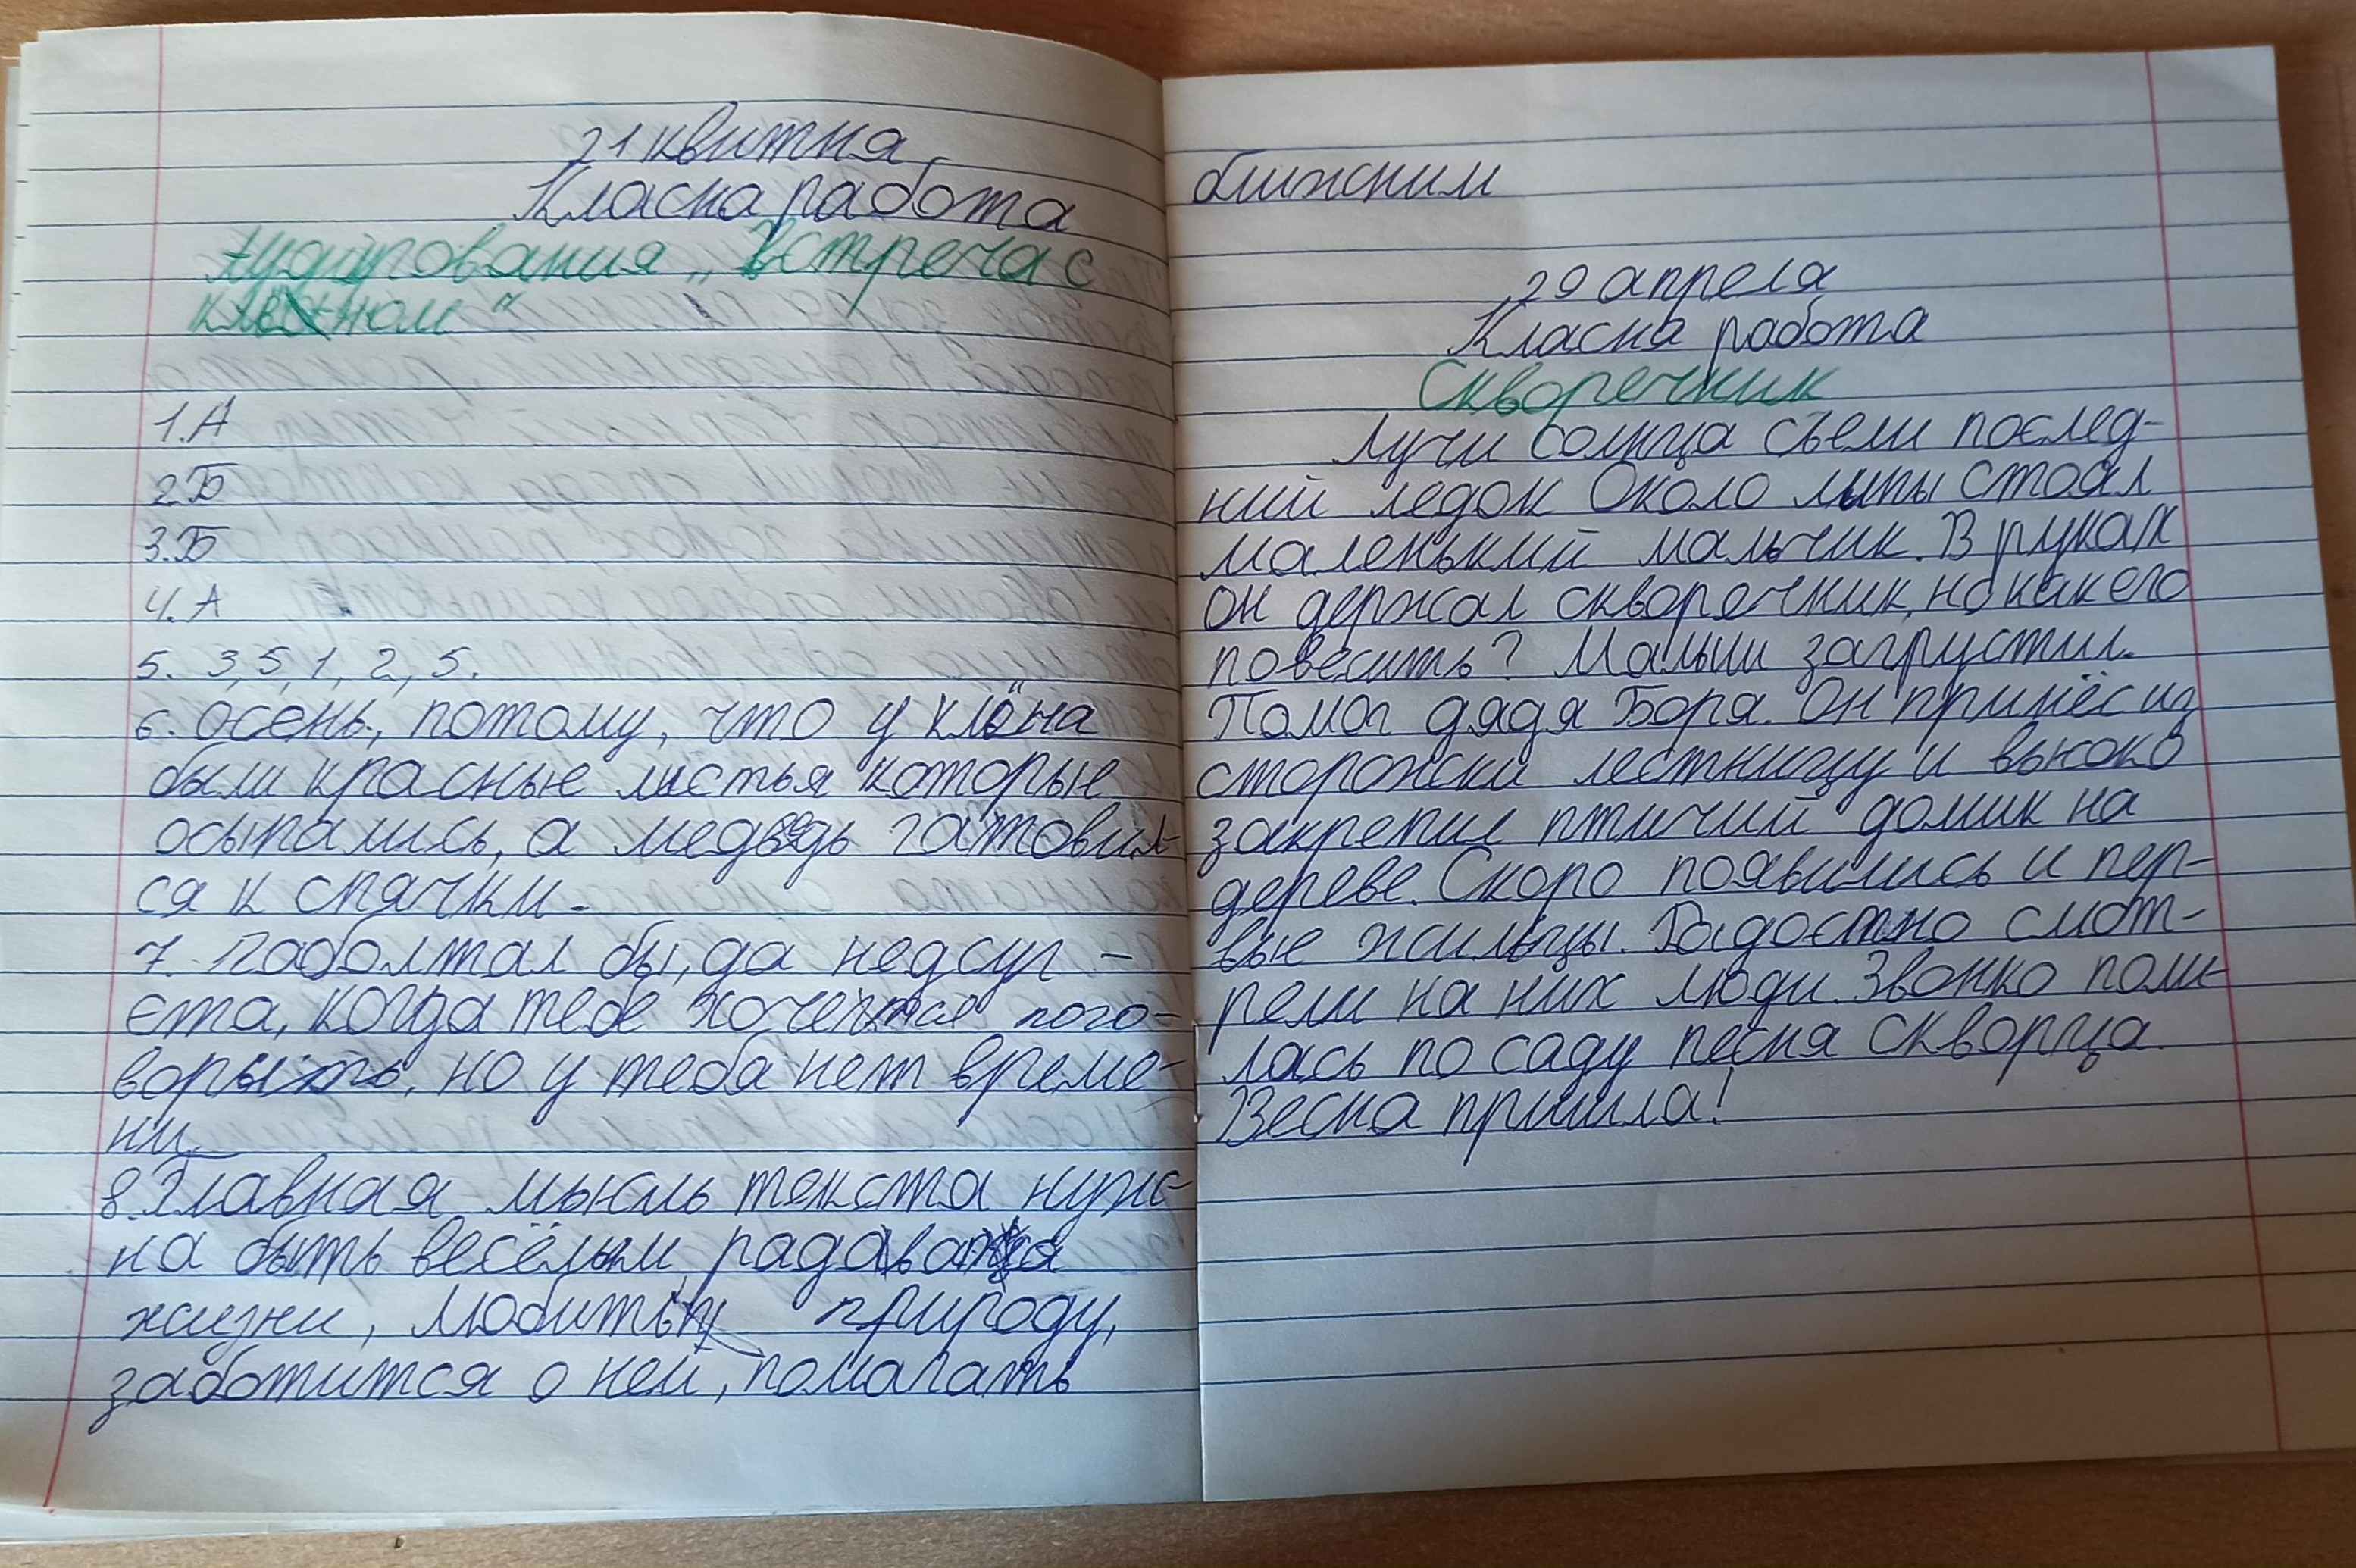 21 квитня
Класна работа
Аудирования „Встреча с
клёном"
1. А
2 Б
3. Б
4. А
5. 3, 5, 1, 2, 5.
6. осень, потому, что у клёна
были красные листья которые
осыпались, а медведь гатовил-
ся к спячки.
7. Паболтал бы, да недсуг -
ета, когда тебе хочется пого-
ворыть, но у теба нет време-
ни.
8. Главная мысль текста нуж-
на быть весёлым, радаваця
жизни, любить природу,
заботится о ней, помагать
ближним
29 апреля
Класна работа
Скворечник
Лучи солнца съели послед-
ний ледок Около липы стоял
маленький мальчик. В руках
он держал скворечник, но как его
повесить? Малыш загрустил.
Помог дядя Боря. Он принёс из
сторожки лестницу и высоко
закрепил птичий домик на
дереве. Скоро появились и пер-
вые жильцы. Радостно смот-
рели на них люди. Звонко поли-
лась по саду песня скворца.
Весна пришла!